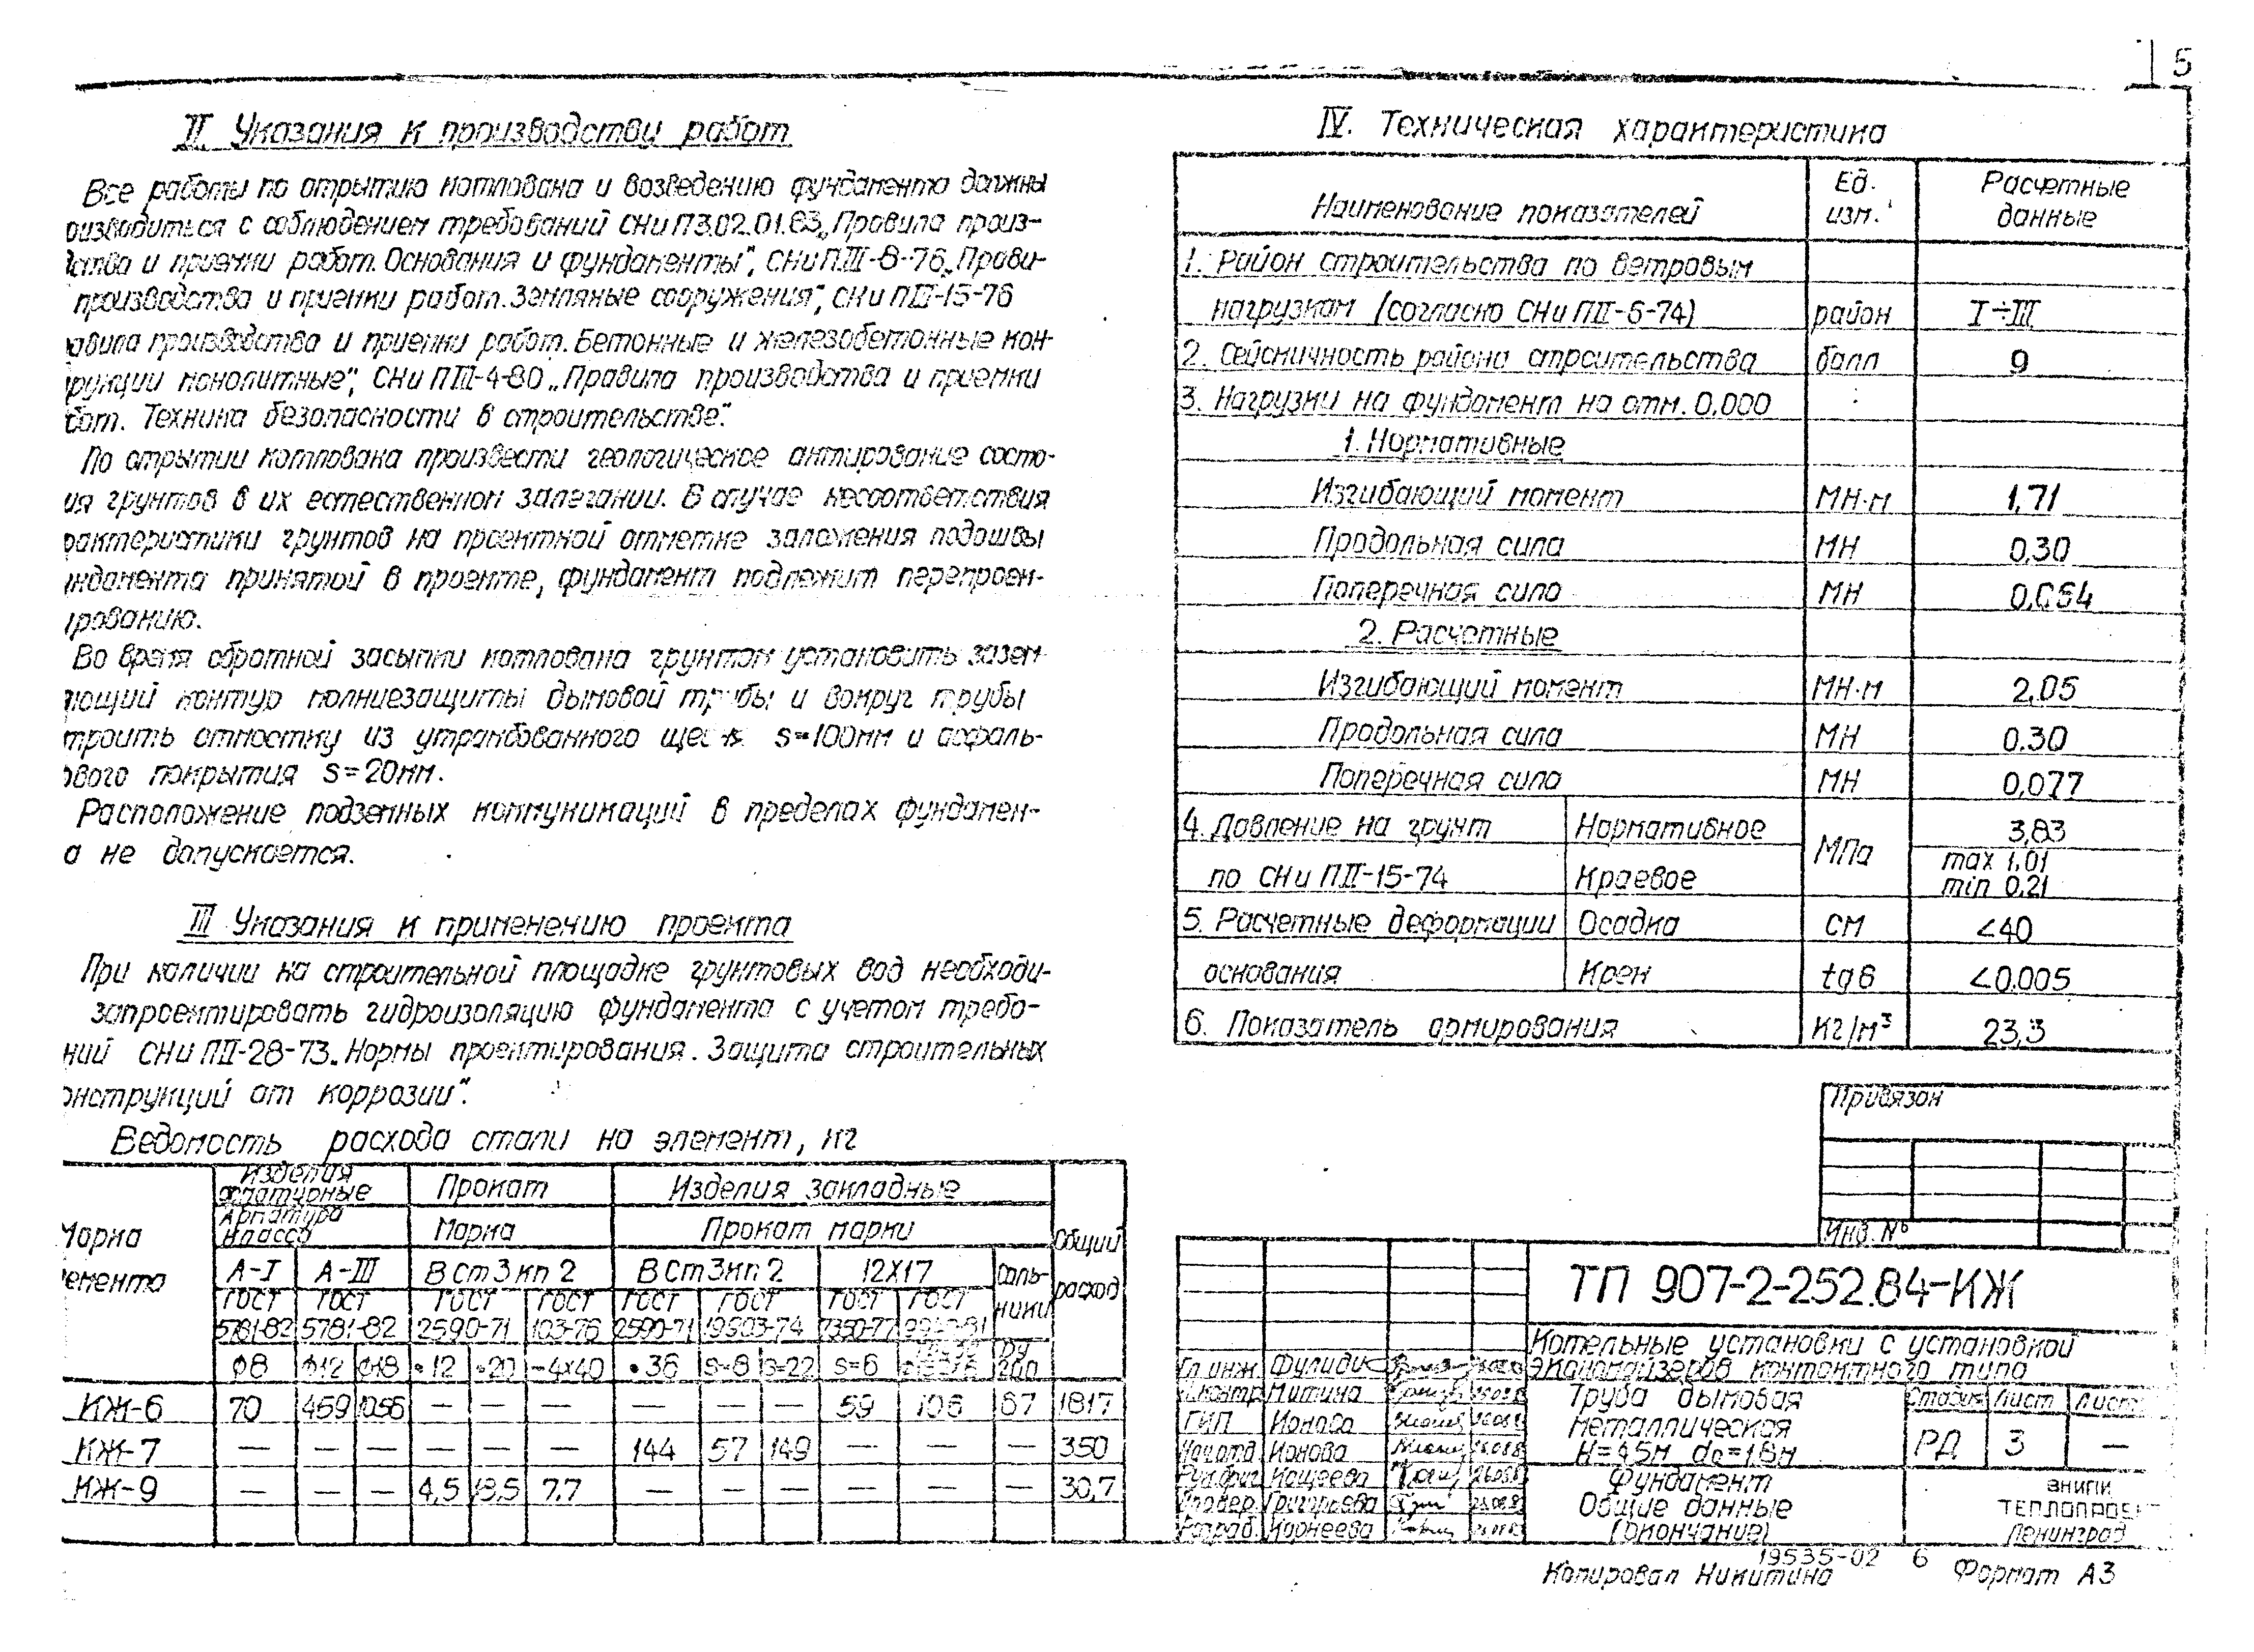 5
II Указания к производству работ
Все работы по отрытию котлована и возведению фундамента должны
оизводиться с соблюдением требований СНиП 3.02.01.83 „Правила произ-
ства и приемки работ. Основания и фундаменты", СНиП III-8-76 „Прави-
производства и приемки работ. Земляные сооружения", СНиП III-15-76
авила производства и приемки работ. Бетонные и железобетонные кон-
рукции монолитные", СНиП III-4-80 „Правила производства и приемки
бот. Техника безопасности в строительстве".
По отрытии котлована произвести геологическое актирование состо-
ия грунтов в их естественном залегании. В случае несоответствия
рактеристики грунтов на проектной отметке заложения подошвы
ндамента принятой в проекте, фундамент подлежит перепроек-
ированию.
Во время обратной засыпки котлована грунтом установить зазем-
ющий контур молниезащиты дымовой трубы и вокруг трубы
троить отмостку из утрамбованного s=100мм и асфаль-
ового покрытия s=20мм.
Расположение подземных коммуникаций в пределах фундамен-
а не допускается.
III Указания к применению проекта
При наличии на строительной площадке грунтовых вод необходи-
запроектировать гидроизоляцию фундамента с учетом требо-
ний СНиП II-28-73 „Нормы проектирования. Защита строительных
онструкций от коррозии".
Ведомость расхода стали на элемент, кг
Марка
емента
Изделия арматурные
Прокат
Изделия закладные
Общий расход
Арматура класса
Марка
Прокат марки
А-I А-III ВСт3кп2 ВСт3кп2 12Х17 Саль-
ники
ГОСТ ГОСТ ГОСТ ГОСТ ГОСТ ГОСТ ГОСТ ГОСТ
5781-82 5781-82 2590-71 103-76 2590-71 19903-74 7350-77
ф8 ф12 ф18 •12 •20 -4х40 •36 s=8 s=22 s=6 Ду 200
КЖ-6 70 459 1056 — — — — — — 59 106 67 1817
КЖ-7 — — — — — — 144 57 149 — — — 350
КЖ-9 — — — 4,5 18,5 7.7 — — — — — — 30,7
IV. Техническая характеристика
Наименование показателей Ед. изм. Расчетные данные
1. Район строительства по ветровым
нагрузкам (согласно СНиП II-6-74) район I÷III
2. Сейсмичность района строительства балл 9
3. Нагрузки на фундамент на отм. 0,000
1. Нормативные
Изгибающий момент МН·м 1,71
Продольная сила МН 0,30
Поперечная сила МН 0,064
2. Расчетные
Изгибающий момент МН·м 2,05
Продольная сила МН 0.30
Поперечная сила МН 0,077
4. Давление на грунт Нормативное МПа 3,83
по СНиП II-15-74 Краевое max 1,01
min 0,21
5. Расчетные деформации Осадка см <40
основания Крен tgв <0.005
6. Показатель армирования кг/м³ 23,3
Привязан
Инв. №
ТП 907-2-252.84-КЖ
Котельные установки с установкой
экономайзеров контактного типа
Гл. инж. Фулиди
Н.контр. Митина
ГИП Ионова
Нач.отд. Ионова
Рук.бриг. Кащеева
Провер. Григорьева
Разраб. Корнеева
Труба дымовая
металлическая
H=45м d₀=1.8м
Стадия Лист Лист
РД 3 —
Фундамент
Общие данные
(окончание)
ВНИПИ
ТЕПЛОПРОЕКТ
Ленинград
19535-02 6
Копировал Никитина Формат А3